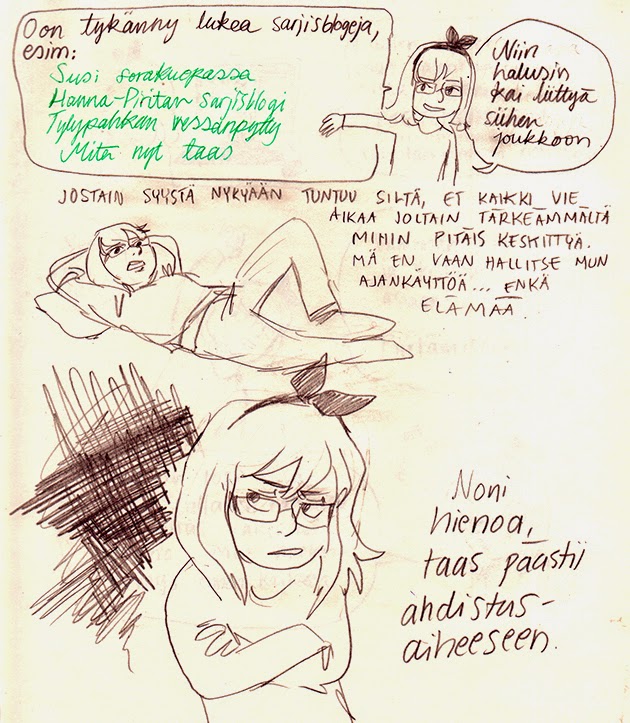 Oon tykänny lukea sarjisblogeja,
esim:
Susi sorakuopassa
Hanna-Piritan sarjisblogi
Tylypahkan vessanpytty
Mitä nyt taas
Niin
halusin
kai liittyä
siihen
joukkoon
JOSTAIN SYYSTÄ NYKYÄÄN TUNTUU SILTÄ, ET KAIKKI VIE
AIKAA JOLTAIN TÄRKEÄMMÄLTÄ
MIHIN PITÄIS KESKITTYÄ.
MÄ EN VAAN HALLITSE MUN
AJANKÄYTTÖÄ... ENKÄ
ELÄMÄÄ.
Noni
hienoa,
taas päästii
ahdistus-
aiheeseen.